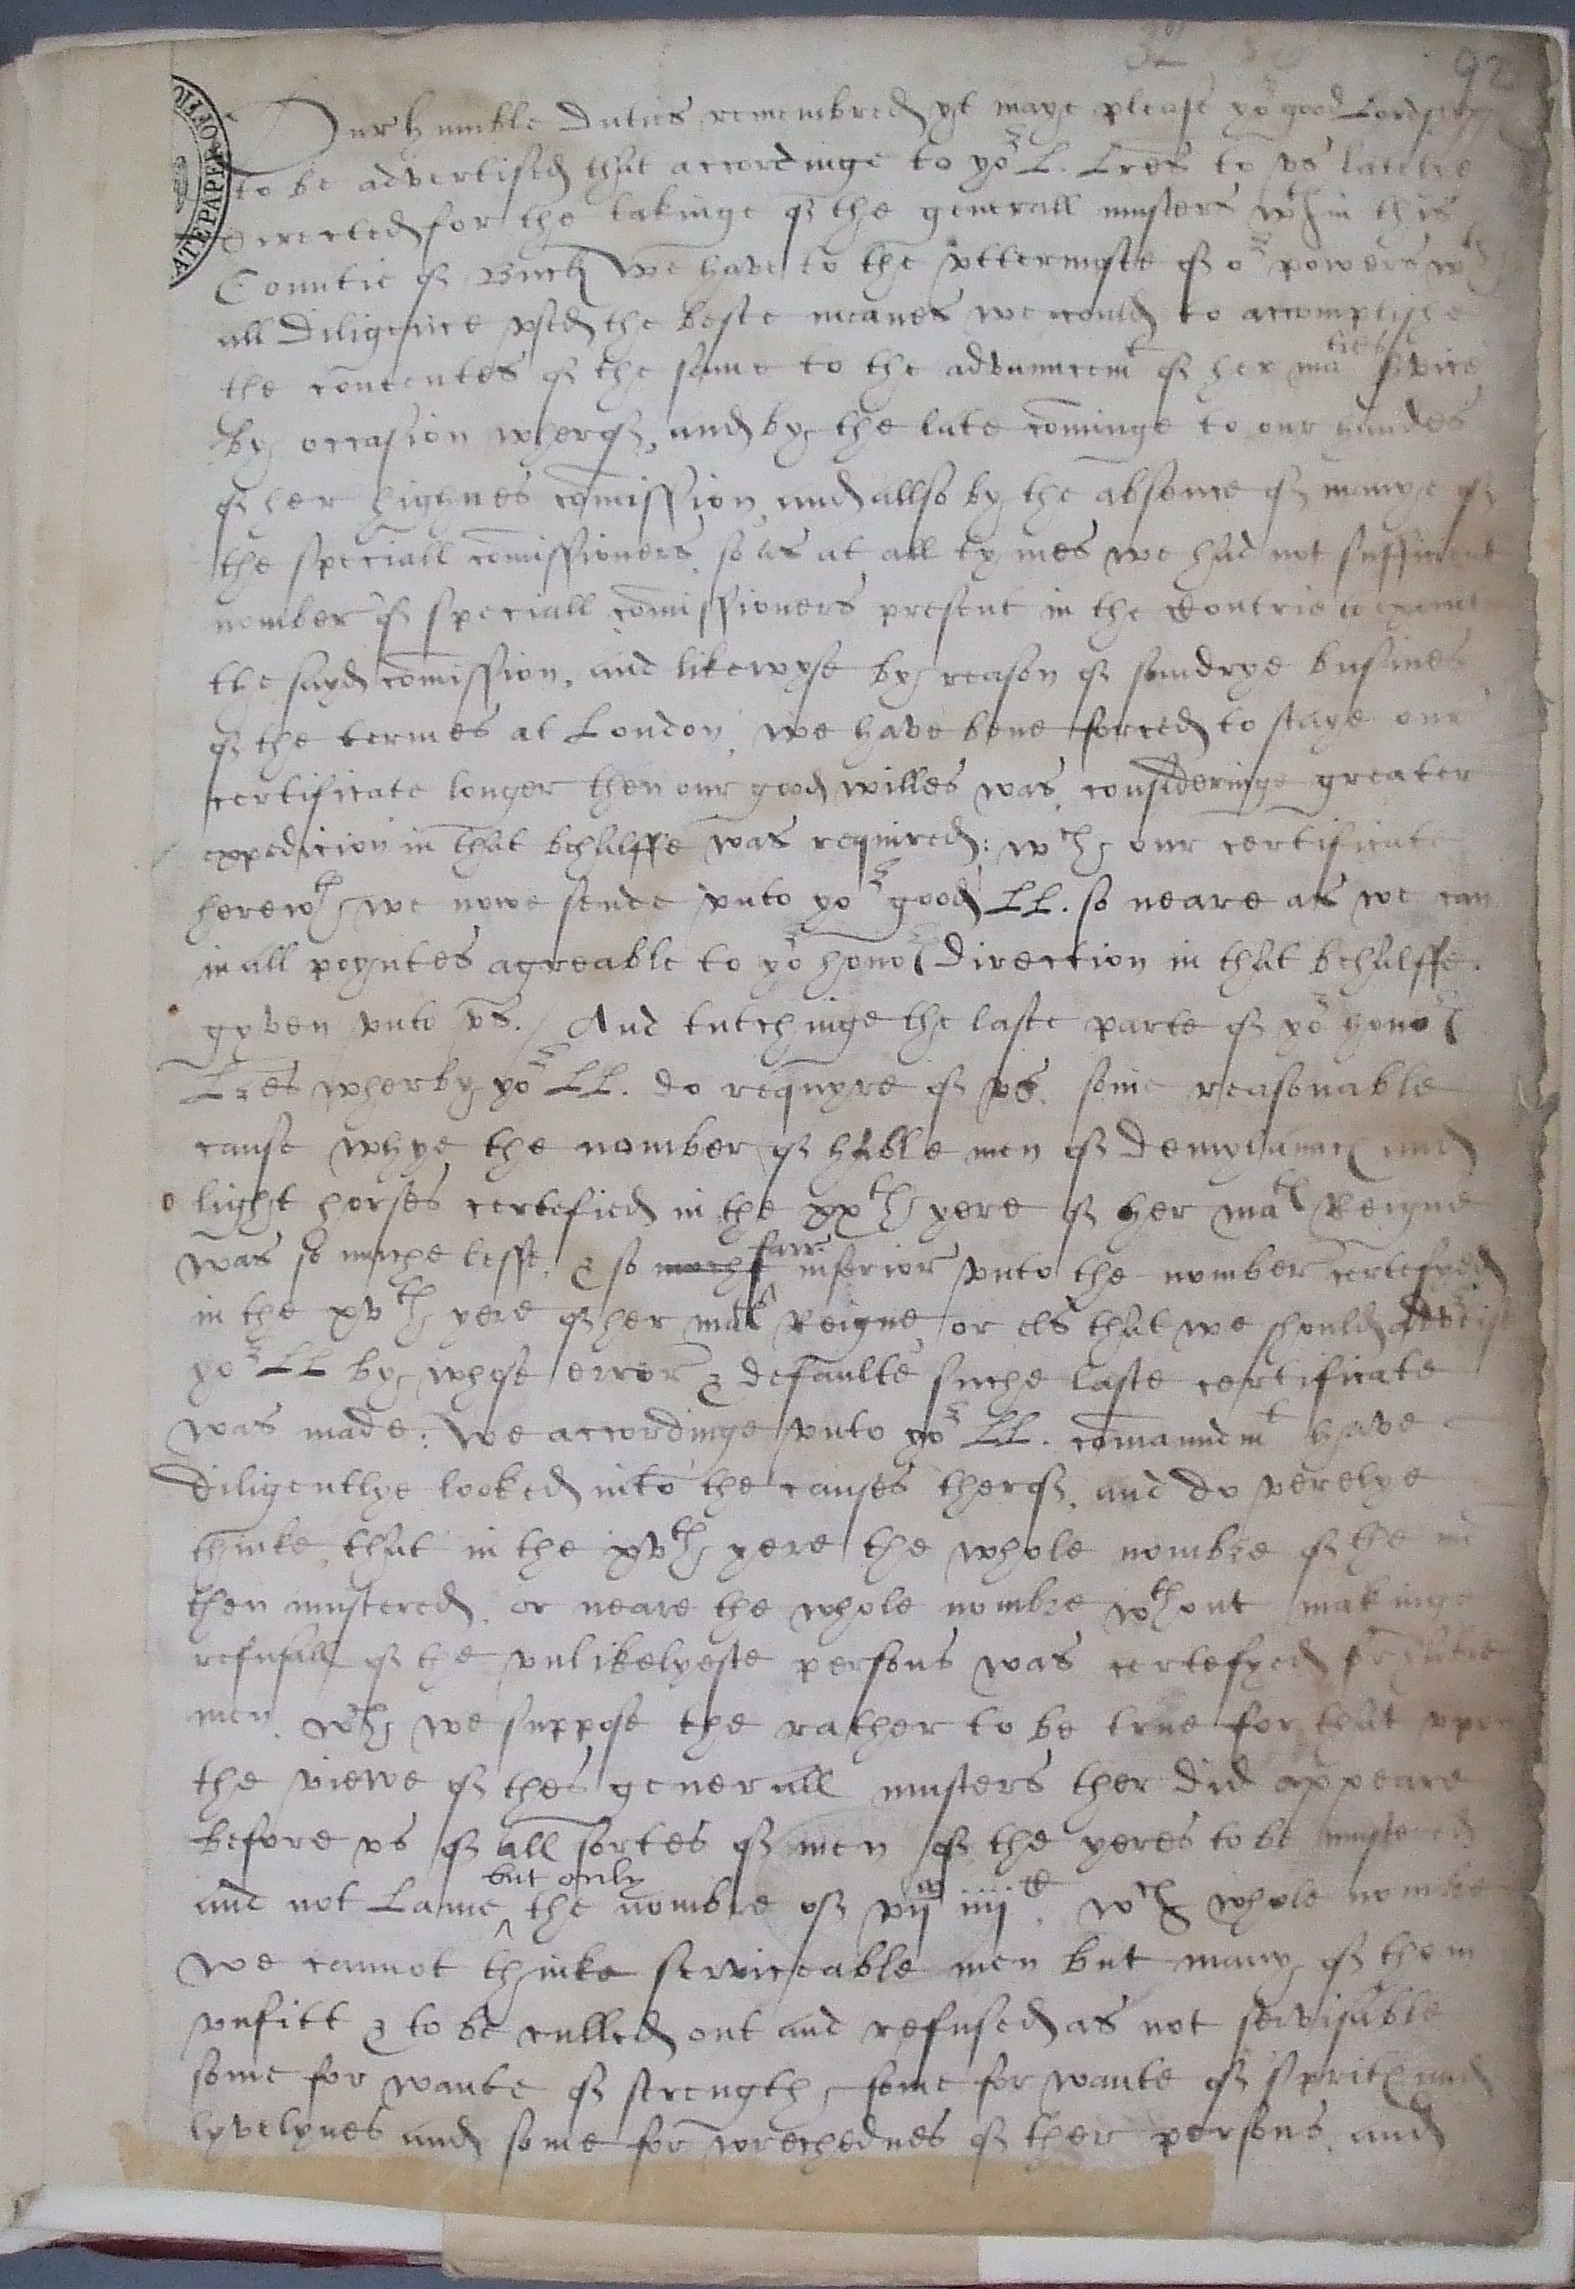 32 92
Our humble duties remembred yt maye please yor good Lordshipps
to be advertised that accordinge to yor L. Lres to vs latelie
directed for the takinge of the generall musters wthin this
Countie of Buck we have to the vttermoste of or powers wth
all diligence vsed the beste meanes we could to accomplishe
the contentes of the same to the advauncemt of her maties service
By occasion wherof, and by the late cominge to our handes
of her highnes comission, and allso by the absence of manye of
the speciall comissioners, so as at all tymes we had not sufficient
nomber of speciall comissioners present in the Contrie to execute
the sayd comission, and likewyse by reason of sundrye busines
of the termes at London, we have bene forced to staye our
certificate longer then our good willes was, consideringe greater
expedicion in that behalffe was required: wch our certificate
herewth we nowe sende vnto yor good LL. so neare as we can
in all poyntes agreable to yor honor direction in that behalffe
gyven vnto vs. / And tutchinge the laste parte of yor honor
Lres wherby yor LL. do requyre of vs some reasonable
cause whye the nomber of hable men of demylaunc and
light horses certefied in the xxth yere of her mat Reigne
was so muche lesse, & so muche farr inferior vnto the nomber certefyed
in the xvth yere of her mat Reigne, or els that we should advertise
yor LL by whose error & defaulte suche laste certificate
was made: We accordinge vnto yor LL. comaundmt have
diligentlye looked into the causes therof, and do verelye
thinke, that in the xvth yere the whole nombre of the men
then mustered, or neare the whole nombre wthout makinge
refusall of the vnlikelyeste persons was certefyed for hable
men. Wch we suppose the rather to be true for that vpon
the viewe of thes generall musters ther did appeare
before vs of all sortes of men of the yeres to be mustered
and not Lame but only the nombre of vijm iiijc. wch whole nombre
we cannot thinke serviceable men but many of them
vnfitt & to be culled out and refused as not servisable
some for wante of strength, some for wante of sprite and
lyvelynes and some for wrechednes of ther persons, and